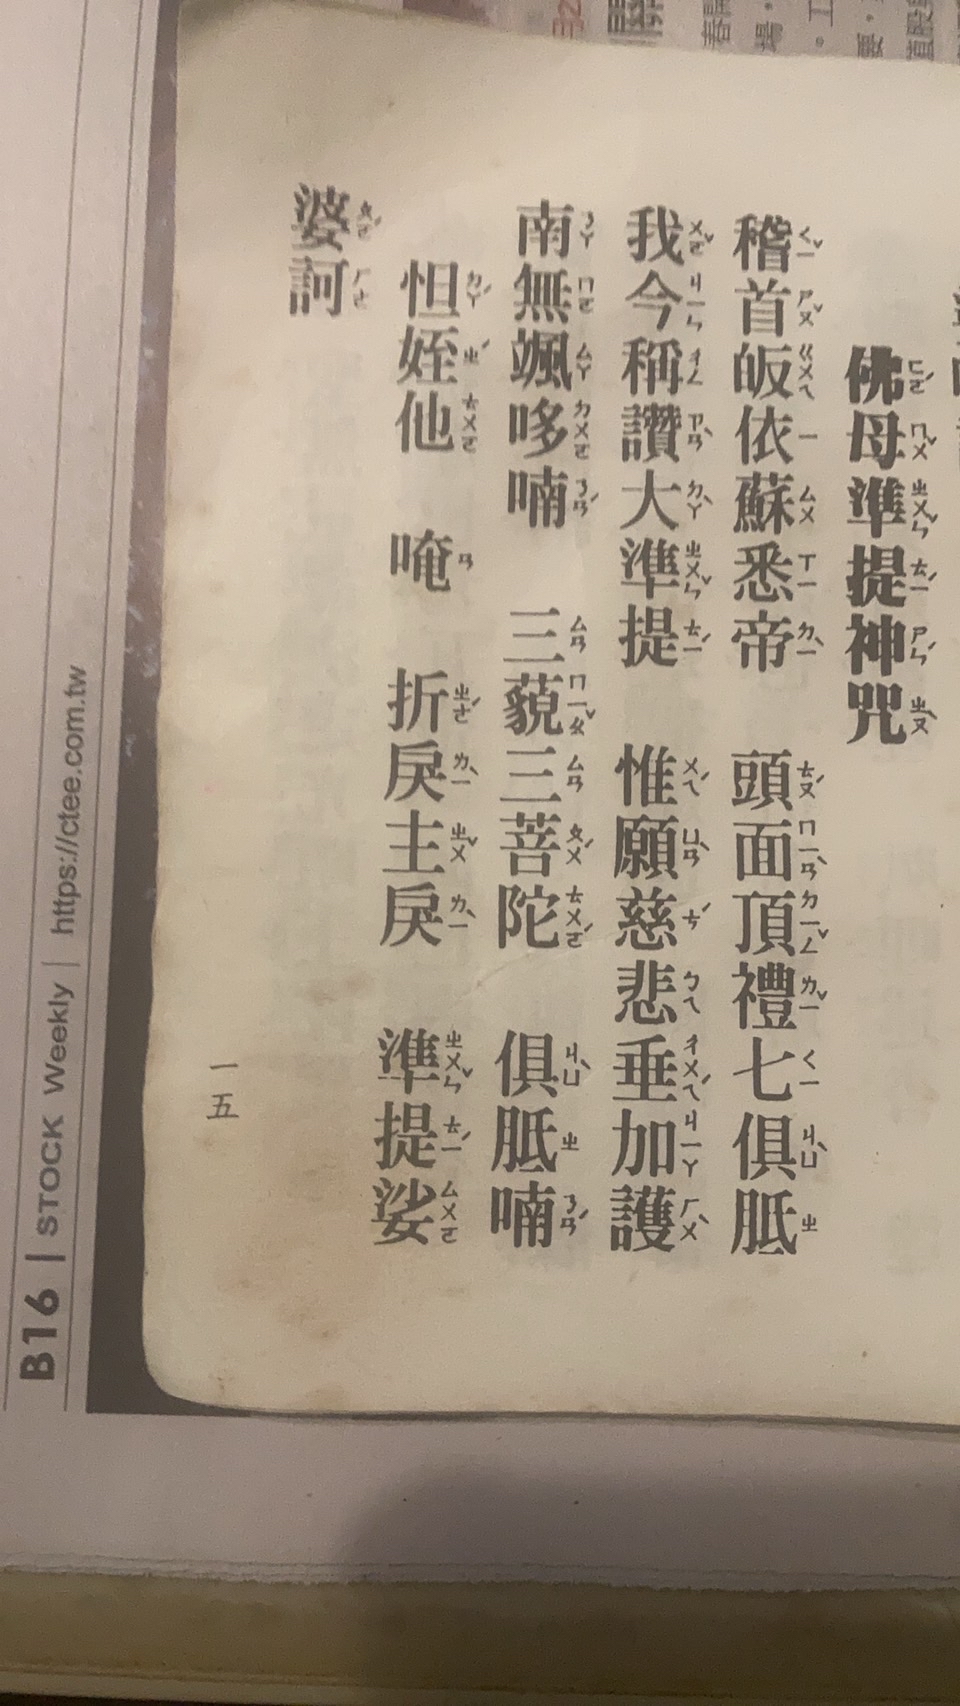 佛母準提神咒
稽首皈依蘇悉帝 頭面頂禮七俱胝
我今稱讚大準提 惟願慈悲垂加護
南無颯哆喃 三藐三菩陀 俱胝喃
怛姪他 唵 折戾主戾 準提娑
婆訶
一五
B16 | STOCK Weekly | https://ctee.com.tw